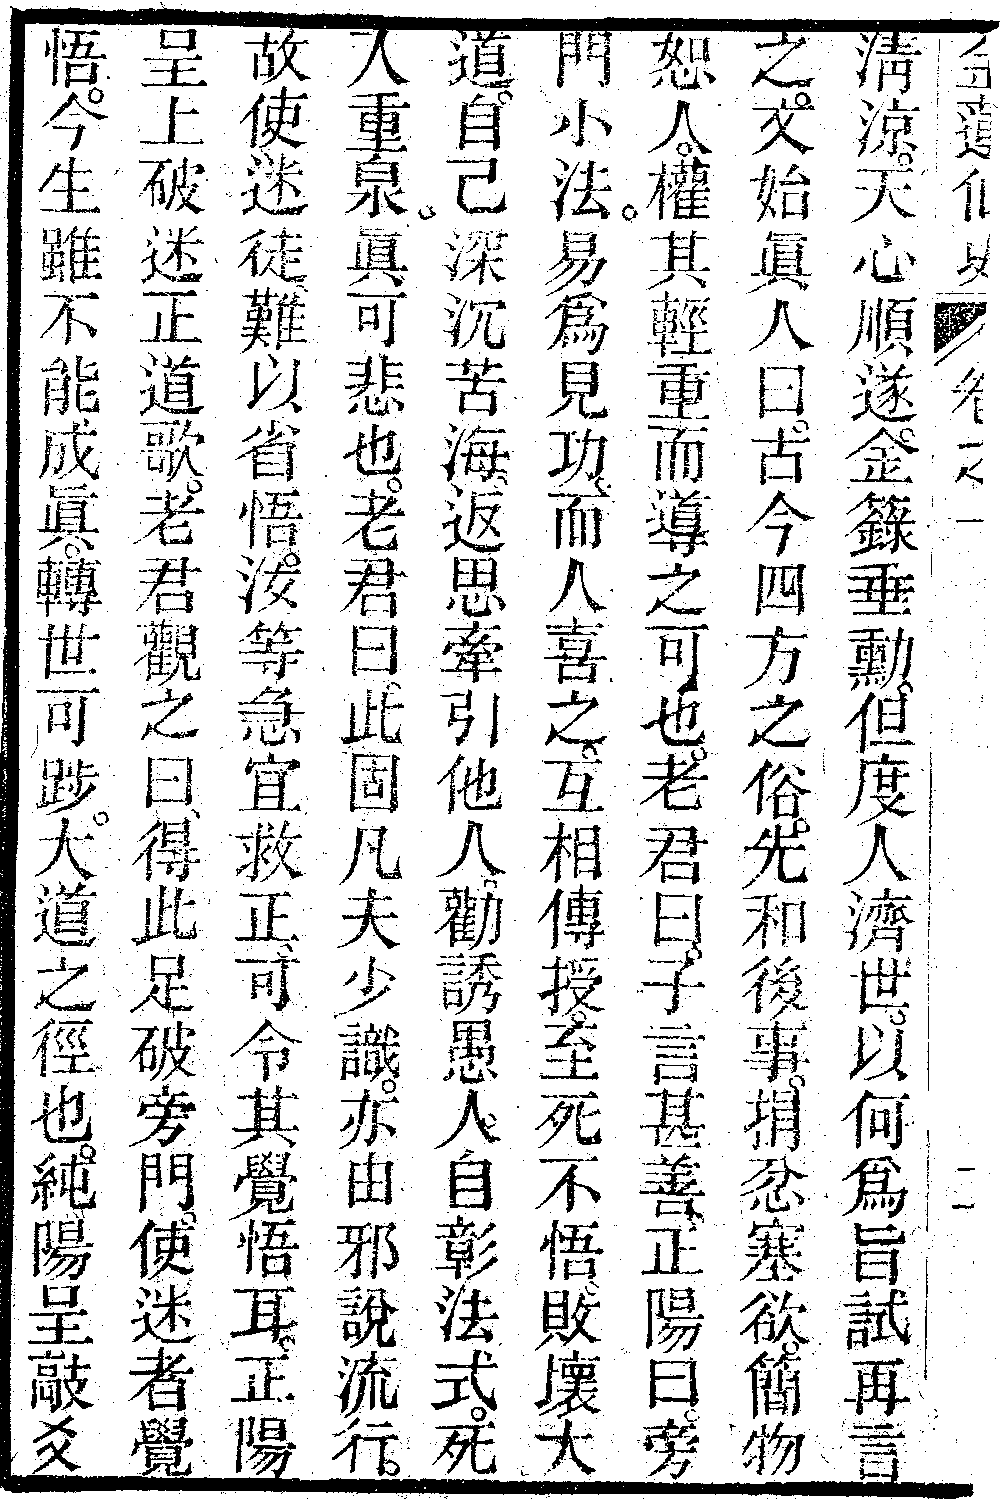 清涼。天心順遂。金籙垂勳。但度人濟世。以何爲旨試再言
之。文始眞人曰。古今四方之俗。先和後事。捐忿塞欲。簡物
恕人。權其輕重而導之可也。老君曰。子言甚善。正陽曰。旁
門小法。易爲見功。而人喜之。互相傳授。至死不悟。敗壞大
道。自己深沉苦海。返思牽引他人。勸誘愚人。自彰法式。死
入重泉。眞可悲也。老君曰。此固凡夫少識。亦由邪說流行。
故使迷徒難以省悟。汝等急宜救正、可令其覺悟耳。正陽
呈上破迷正道歌。老君觀之曰、得此足破旁門。使迷者覺
悟。今生雖不能成眞。轉世可踄。大道之徑也。純陽呈敲爻